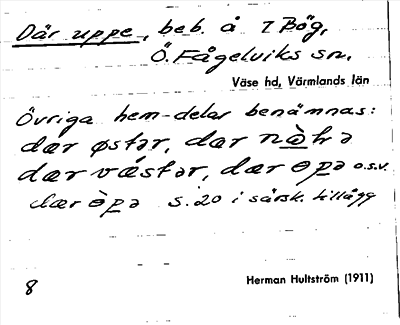 Där uppe, beb. å 7 Bög,
Ö. Fågelviks sn,
Väse hd, Värmlands län
Övriga hem-delar benämnas:
dær østər, dær nòlɾə
dær væstər, dær ɵpə o.s.v.
dær ɵ̀pə s. 20 i särsk. tillägg
8 Herman Hultström (1911)